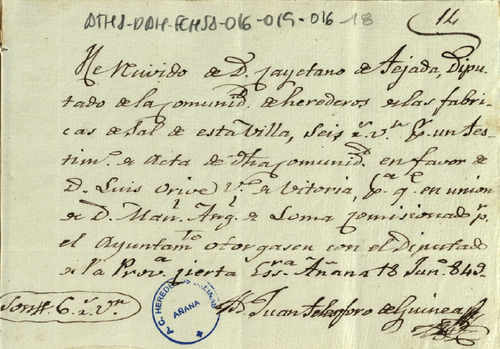 ATHA-DAH-FCHSA-016-019-016-18
14
He Recivido de D. Cayetano de Tejada, Dipu-
tado de la Comunid.d de herederos de las fabri-
cas de Sal de esta Villa, seis r.s v.n p.r un tes-
tim.o de Acta de dha Comunid.d en favor de
D. Luis Orive V.o de Vitoria, p.a q.e en union
de D. Man.l Ang.l de Loma Comisionado p.r
el Ayuntam.to otorgasen con el Diputado
de la Prov.a cierta Es.ra Añana 18 Jun.o 849.
Son 6 r.s v.n
Juan Telesforo de Guinea
A.C. HEREDEROS SALINAS
AÑANA